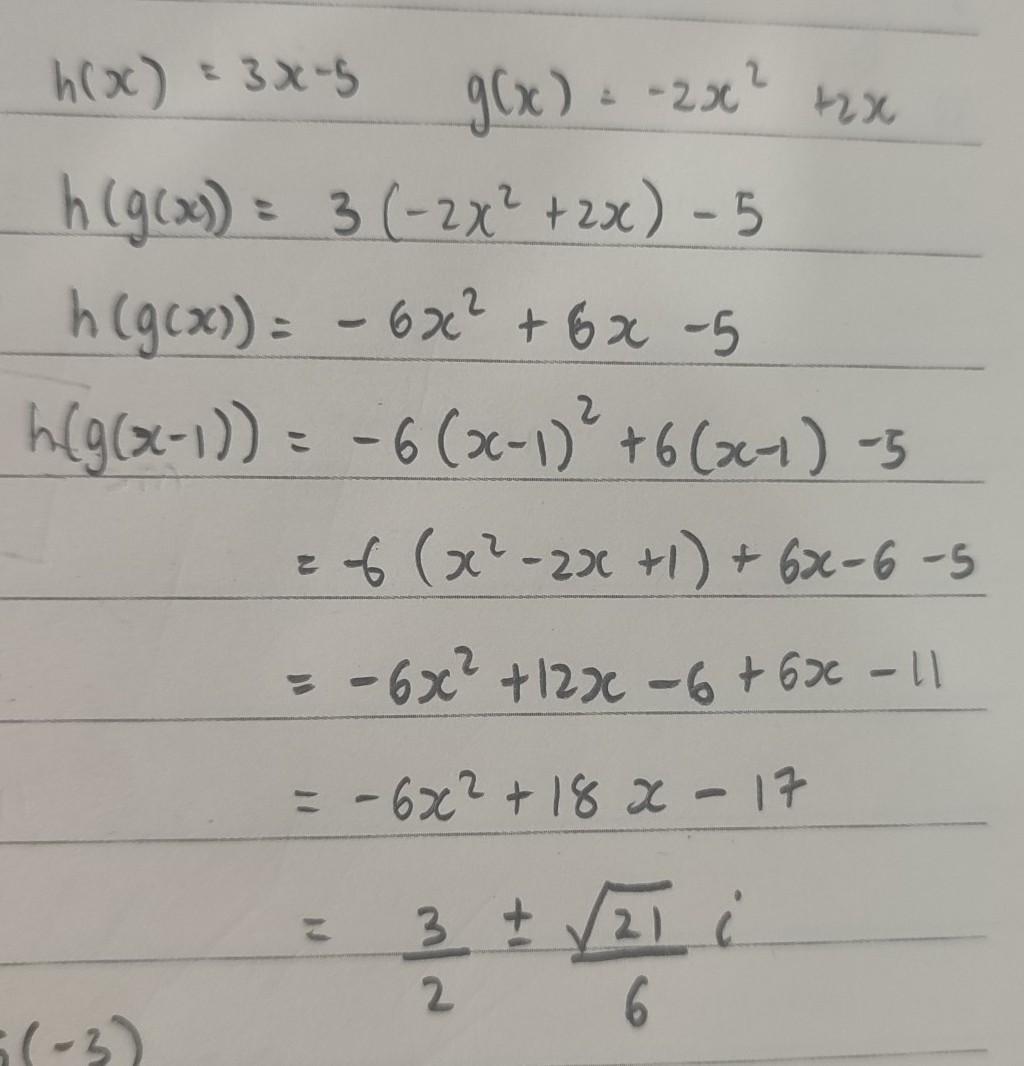 h(x) = 3x-5 g(x) = -2x² +2x
h(g(x)) = 3(-2x² +2x) - 5
h(g(x)) = - 6x² + 6x -5
h(g(x-1)) = -6(x-1)² +6(x-1) -5
= -6 (x² -2x +1) + 6x-6 -5
= -6x² +12x -6 + 6x - 11
= -6x² + 18 x - 17
= 3/2 ± √21/6 i
(-3)